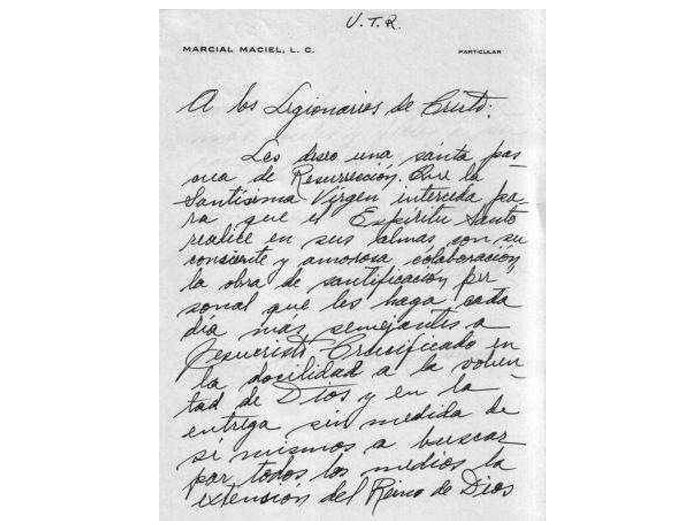 V.T.R.
MARCIAL MACIEL, L. C. PARTICULAR
A los Legionarios de Cristo:
Les deseo una santa pas
cua de Resurrección. Que la
Santísima Virgen interceda pa-
ra que el Espíritu Santo
realice en sus almas, con su
consciente y amorosa colaboración,
la obra de santificación per
sonal que les haga cada
día más semejantes a
Jesucristo Crucificado en
la docilidad a la volun-
tad de Dios y en la
entrega sin medida de
sí mismos a buscar
por todos los medios la
extensión del Reino de Dios